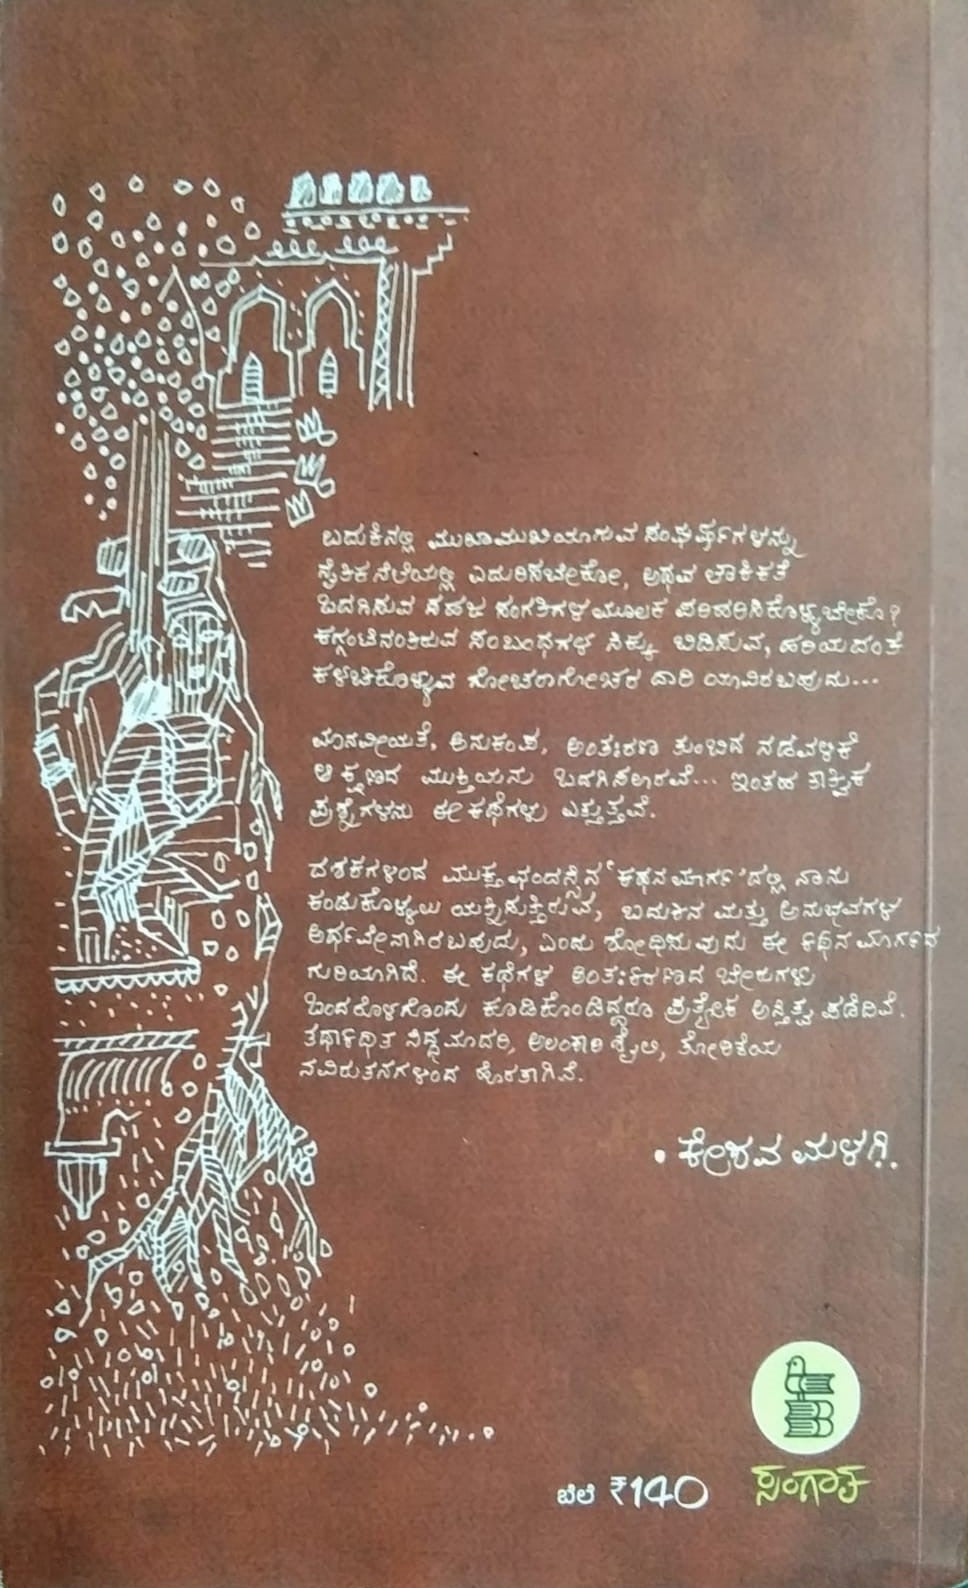 ಬದುಕಿನಲ್ಲಿ ಮುಖಾಮುಖಿಯಾಗುವ ಸಂಘರ್ಷಗಳನ್ನು
ನೈತಿಕ ನೆಲೆಯಲ್ಲಿ ಎದುರಿಸಬೇಕೋ, ಅಥವ ಲೌಕಿಕತೆ
ಒದಗಿಸುವ ಸಹಜ ಸಂಗತಿಗಳ ಮೂಲಕ ಪರಿಹರಿಸಿಕೊಳ್ಳಬೇಕೊ?
ಕಗ್ಗಂಟಿನಂತಿರುವ ಸಂಬಂಧಗಳ ಸಿಕ್ಕು ಬಿಡಿಸುವ, ಹರಿಯದಂತೆ
ಕಳಚಿಕೊಳ್ಳುವ ಗೋಚರಾಗೋಚರ ದಾರಿ ಯಾವಿರಬಹುದು...
ಮಾನವೀಯತೆ, ಅನುಕಂಪ, ಅಂತಃಕರಣ ತುಂಬಿದ ನಡವಳಿಕೆ
ಆ ಕ್ಷಣದ ಮುಕ್ತಿಯನು ಒದಗಿಸಲಾರವೆ... ಇಂತಹ ತಾತ್ವಿಕ
ಪ್ರಶ್ನೆಗಳನು ಈ ಕಥೆಗಳು ಎತ್ತುತ್ತವೆ.
ದಶಕಗಳಿಂದ ಮುಕ್ತ ಛಂದಸ್ಸಿನ 'ಕಥನ ಮಾರ್ಗ'ದಲ್ಲಿ ನಾನು
ಕಂಡುಕೊಳ್ಳಲು ಯತ್ನಿಸುತ್ತಿರುವ, ಬದುಕಿನ ಮತ್ತು ಅನುಭವಗಳ
ಅರ್ಥವೇನಾಗಿರಬಹುದು, ಎಂದು ಶೋಧಿಸುವುದು ಈ ಕಥನ ಮಾರ್ಗದ
ಗುರಿಯಾಗಿದೆ. ಈ ಕಥೆಗಳ ಅಂತಃಕರಣದ ಬೇರುಗಳು
ಒಂದರೊಳಗೊಂದು ಕೂಡಿಕೊಂಡಿದ್ದರೂ ಪ್ರತ್ಯೇಕ ಅಸ್ತಿತ್ವ ಪಡೆದಿವೆ.
ಸಿದ್ಧ ಮಾದರಿ, ಅಲಂಕಾರಿ ಶೈಲಿ, ತೋರಿಕೆಯ
ನವಿರುತನಗಳಿಂದ ಹೊರತಾಗಿವೆ.
• ಕೇಶವ ಮಳಗಿ.
ಬೆಲೆ ₹140
ಸಂಗಾತ